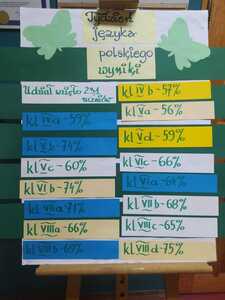 Tydzień
języka
polskiego
wyniki
Udział wzięło 231
uczniów
kl IV a - 59%
kl V b - 74%
kl V c - 60%
kl VI b - 74%
kl VII a - 71%
kl VIII a - 66%
kl VIII b - 69%
kl IV b - 57%
kl V a - 56%
kl V d - 59%
kl VI c - 66%
kl VI a - 64%
kl VII b - 68%
kl VIII c - 65%
kl VIII d - 75%